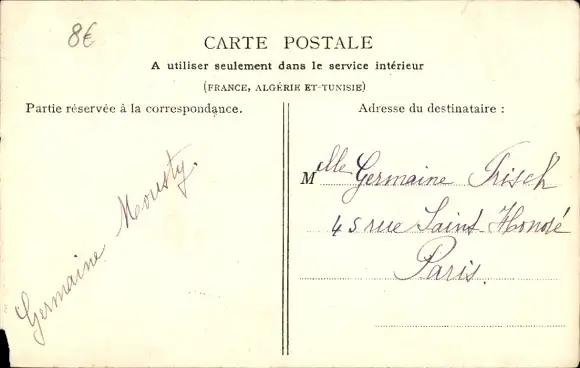 8€
CARTE POSTALE
A utiliser seulement dans le service intérieur
(FRANCE, ALGÉRIE ET TUNISIE)
Partie réservée à la correspondance.
Germaine Mousty.
Adresse du destinataire :
Melle Germaine Frisch
45 rue Saint-Honoré
Paris.